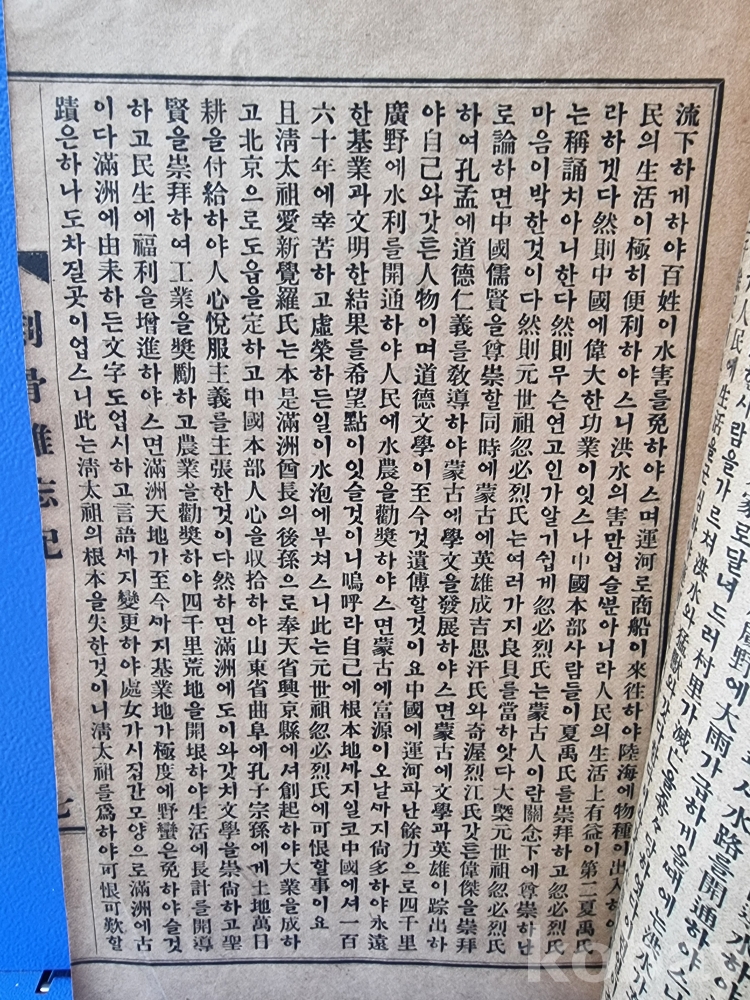 流下하게하야百姓이水害를免하야스며運河로商船이來徃하야陸海에物種이出入하야
民의生活이極히便利하야스니洪水의害만업슬分아니라人民의生活上有益이第二夏禹氏
라하겟다然則中國에偉大한功業이잇스나中國本部사람들이夏禹氏를崇拜하고忽必烈氏
는稱誦치아니한다然則무슨연고인가알기쉽게忽必烈氏는蒙古人이란關念下에尊崇하난
마음이박한것이다然則元世祖忽必烈氏는여러가지良貝를當하앗다大槩元世祖忽必烈氏
로論하면中國儒賢을尊崇할同時에蒙古에英雄成吉思汗氏와奇渥烈江氏갓든偉傑을崇拜
하여孔孟에道德仁義를敎導하야蒙古에學文을發展하야스면蒙古에文學과英雄이踪出하
야自己와갓튼人物이며道德文學이至今것遺傳할것이요中國에運河파난餘力으로四千里
廣野에水利를開通하야人民에水農을勸獎하야스면蒙古에富源이오날까지尙多하야永遠
한基業과文明한結果를希望點이잇슬것이니嗚呼라自己에根本地까지일코中國에셔一百
六十年에幸苦하고虛榮하든일이水泡에부쳐스니此는元世祖忽必烈氏에可恨할事이요
且淸太祖愛新覺羅氏는本是滿洲酋長의後孫으로奉天省興京縣에셔創起하야大業을成하
고北京으로도읍을定하고中國本部人心을収拾하야山東省曲阜에孔子宗孫에게土地萬日
耕을付給하야人心悅服主義를主張한것이다然하면滿洲에도이와갓치文學을崇尙하고聖
賢을崇拜하여工業을獎勵하고農業을勸獎하야四千里荒地을開垠하야生活에長計를開導
하고民生에福利을增進하야스면滿洲天地가至今까지基業地가極度에野蠻은免하야슬것
이다滿洲에由来하든文字도업시하고言語까지變更하야處女가시집간모양으로滿洲에古
蹟은하나도차질곳이업스니此는淸太祖의根本을失한것이니淸太祖를爲하야可恨可歎할
骨雜志記
七